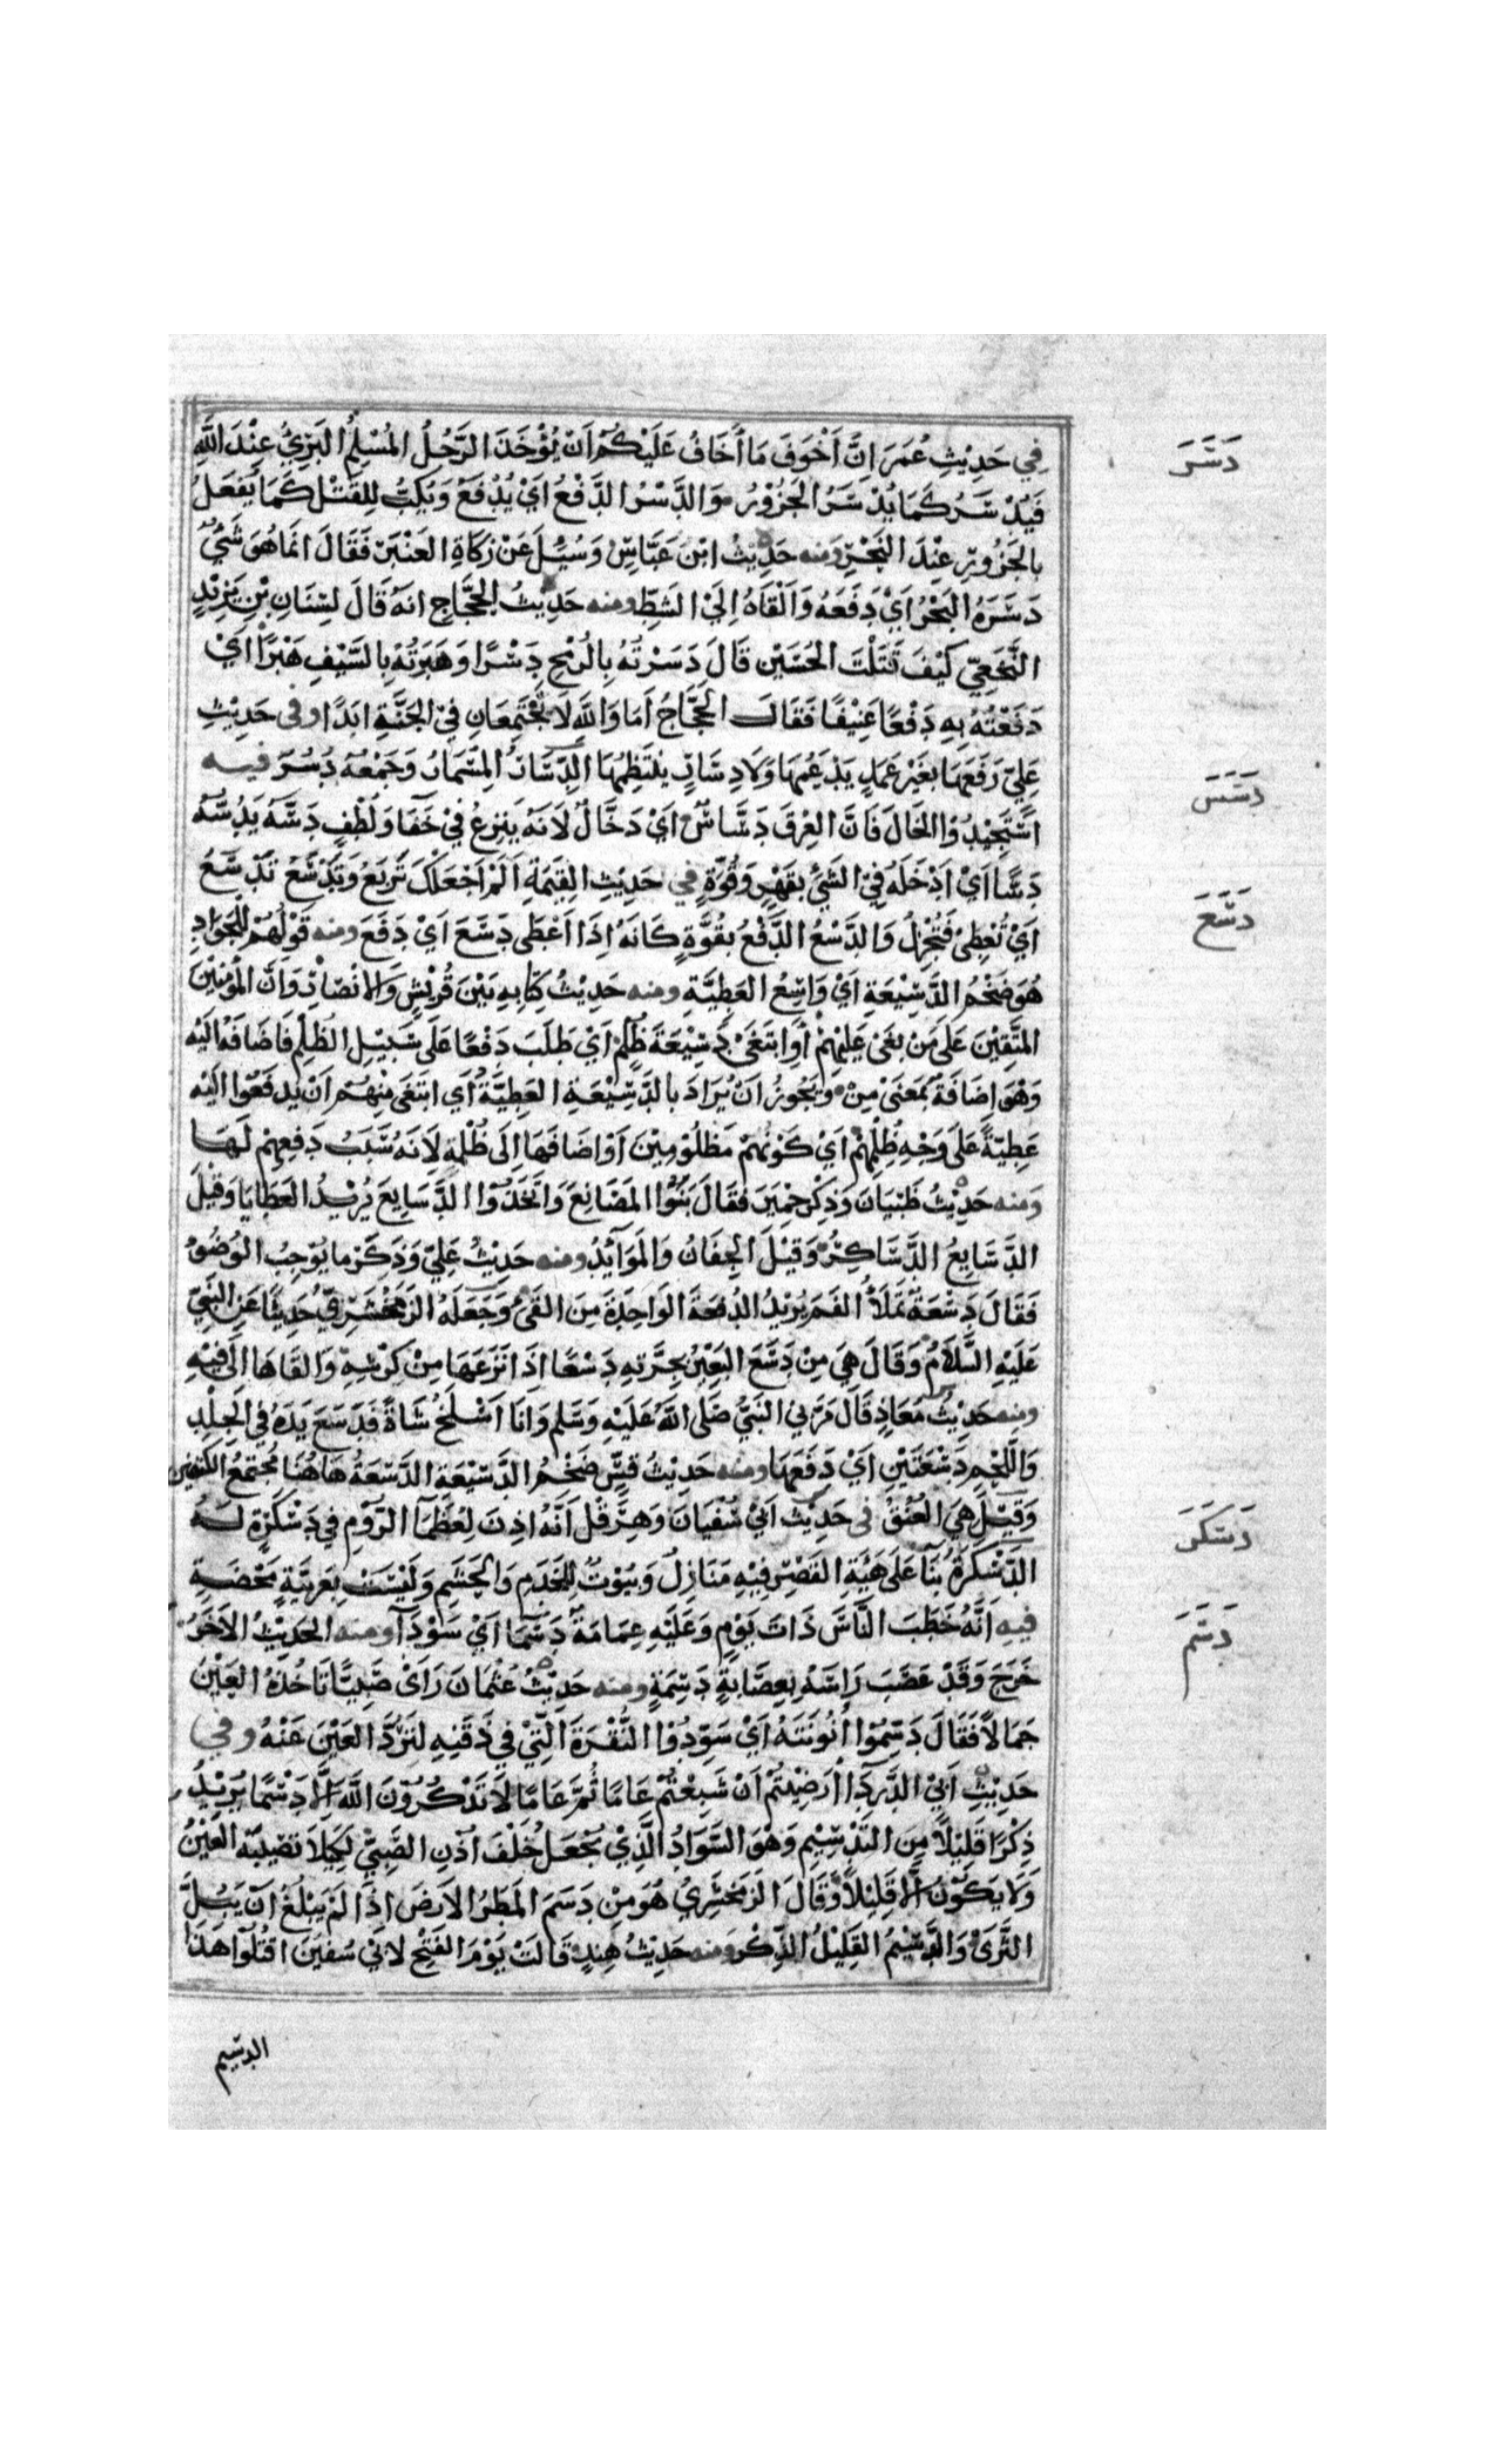 دَسَرَ
في حَدِيْثِ عُمَرَ اِنَّ أَخْوَفَ مَا أَخَافُ عَلَيْكُمْ اَنْ يُؤْخَذَ الرَّجُلُ المُسْلِمُ البَرِيُّ عِنْدَ اللهِ
فَيُدْسَرُ كَمَا يُدْسَرُ الجَزُوْرُ وَالدَّسْرُ الدَّفْعُ اَيْ يُدْفَعُ وَيُكَبُّ لِلقَتْلِ كَمَا يُفْعَلُ
بِالجَزُورِ عِنْدَ النَّحْرِ ومنه حَدِيْثُ ابْنِ عَبَّاسٍ وَسُئِلَ عَنْ زَكَاةِ العَنْبَرِ فَقَالَ انَمَا هُوَ شَيْءٌ
دَسَرَهُ البَحْرُ اَيْ دَفَعَهُ وَاَلْقَاهُ اِلَيْ الشَطِّ ومنه حَدِيْثُ الحَجَّاجِ انَهُ قَالَ لِسِنَانِ بْنِ يَزِيْدٍ
النَّخَعِيّ كَيْفَ قَتَلْتَ الحُسَيْنِ قَالَ دَسَرْتُهُ بِالرُمْحِ دَسْرًا وَهَبَرْتُهُ بِالسَّيْفِ هَبْرًا اَيْ
دَفَعْتُهُ بِهِ دَفْعًا عَنِيْفًا فَقَالَ الحَجَّاجُ اَمَا وَاللهِ لَا تَجْتَمِعَانِ فِيْ الجَنَّةِ ابَدًا وفى حَدِيْثِ
عَلِيّ رَفَعَهَا بِغَيْرِ عَمَدٍ يَدْعَمُهَا وَلَا دِسَارٍ يَنْتَظِمُهَا الدِّسَارُ المِسْمَارُ وَجَمْعُهُ دُسُرٌ فيه
دَسَسَ
اسْتَجِيْدُوْا الخَالَ فَاِنَّ العِرْقَ دَسَّاسٌ اَيْ دَخَّالٌ لَانَهُ يَنْزِعُ فِيْ خَفَا وَلُطْفٍ دَسَّهُ يَدُسُّهُ
دَسًّا اَيْ اَدْخَلَهُ فِيْ الشَيْءِ بِقَهْرٍ وَقُوَّةٍ في حَدِيْثِ القِيٰمَةِ اَلَمْ اَجْعَلْكَ تَرْبَعُ وَتَدْسَعُ تَدْسَعُ
دَسَعَ
اَيْ تُعْطِيْ فَتُجْزِلُ وَالدَّسْعُ الدَّفْعُ بِقُوَّةٍ كَانَهُ اِذَا اَعْطَى دَسَعَ اَيْ دَفَعَ ومنه قَوْلُهُمْ لِلجَوَادِ
هُوَ ضَخْمُ الدَّسِيْعَةِ اَيْ وَاسِعُ العَطِيَّةِ ومنه حَدِيْثُ كِتَابِهِ بَيْنَ قُرَيْشٍ وَالانْصَارِ وَاَنَّ المُؤْمِنِيْنَ
المُتَّقِيْنَ عَلَى مَنْ بَغَى عَلَيْهِمْ أَوِ ابْتَغَى دَسِيْعَةَ ظُلْمٍ اَيْ طَلَبَ دَفْعًا عَلَى سَبِيْلِ الظُلْمِ فَاضَافَهُ الَيْهِ
وَهْوَ اِضَافَةٌ بِمَعْنَى مِنْ وَيَجُوزُ اَنْ يُرَادَ بِالدَّسِيْعَةِ العَطِيَّةُ اَي ابْتَغَى مِنْهُمْ اَنْ يَدْفَعُوْا الَيْهِ
عَطِيّةً عَلَى وَجْهِ ظُلْمِهِمْ اَيْ كَوْنِهِمْ مَظْلُوْمِيْنَ اَوْ اضَافَهَا اِلَى ظُلْمِهِ لِاَنَهُ سَبَبُ دَفْعِهِمْ لَهَا
وَمنه حَدِيْثُ ظَبْيَانَ وَذِكْرِ حِمْيَرَ فَقَالَ بَنَوْا المَصَانِعَ وَاتَّخَذُوْا الدَّسَايِعَ يُرِيْدُ العَطَايَا وَقِيْلَ
الدَّسَايِعُ الدَّسَاكِرُ وَقِيْلَ الجِفَانُ وَالمَوَائِدُ ومنه حَدِيْثُ عَلِيّ وَذَكَرَ مَا يُوْجِبُ الوُضُوْءَ
فَقَالَ دَسْعَةٌ تَمْلَأُ الفَمَ يُرِيْدُ الدُفْعَةَ الوَاحِدَةَ مِنَ القَيْءِ وَجَعَلَهُ الزَمَخْشَرِيّ حَدِيْثًا عَنِ النَّبِيِّ
عَلَيْهِ السَّلَامُ وَقَالَ هِيَ مِنْ دَسَعَ البَعِيْرُ بِجِرَّتِهِ دَسْعًا اذَا نَزَعَهَا مِنْ كِرْشِهِ وَالقَاهَا الَى فِيْهِ
ومنه حَدِيْثُ مَعَاذٍ قَالَ مَرَّ بِي النَبيُّ صَلَّى اللهُ عَلَيْهِ وَسَلَّمَ وَانَا اَسْلَخُ شَاةً فَدَسَعَ يَدَهُ فِي الجِلْدِ
وَاللَّحْمِ دَسْعَتَيْنِ اَيْ دَفَعَهَا ومنه حَدِيْثُ قَيْسٍ ضَخْمُ الدَّسِيْعَةِ الدَّسِعَةُ هَاهُنَا مُجْتَمَعُ الكَتِفَيْنِ
وَقِيْلَ هِيَ العُنُقُ فى حَدِيْثِ اَبِيْ سُفْيَانَ وَهِرَقْلَ اَنَّهُ اذِنَ لِعُظَمَآ الرُّوْمِ فِي دَسْكَرَةٍ لَهُ
دَسْكَرَ
الدَّسْكَرَةُ بِنَآ عَلَى هَيْئَةِ القَصْرِ فِيْهِ مَنَازِلُ وَبُيُوْتٌ لِلخَدَمِ وَالحَشَمِ وَلَيْسَتْ بِعَرَبِيَّةٍ مَحْضَةٍ
دَسَمَ
فيهِ اَنَّهُ خَطَبَ النَّاسَ ذَاتَ يَوْمٍ وَعَلَيْهِ عِمَامَةٌ دَسْمَآ اَيْ سَوْدَآ ومنه الحَدِيْثُ الآخَرُ
خَرَجَ وَقَدْ عَصَبَ رَاسَهُ بِعِصَابَةٍ دَسِمَةٍ ومنه حَدِيْثُ عُثْمَانَ رَأَى صَبِيًّا تَاخُذُهُ العَيْنُ
جَمَالًا فَقَالَ دَسِّمُوْا نُونَتَهُ اَيْ سَوِّدُوْا النُّقْرَةَ الَّتِيْ فِي ذَقَنِهِ لِتَرُدَّ العَيْنَ عَنْهُ وفي
حَدِيْثِ اَبِيْ الدَّرْدَآ أَرَضِيْتُمْ اَنْ شَبِعْتُمْ عَامًا ثُمَّ عَامًا لَا تَذْكُرُوْنَ اللهَ اِلَّا دَسْمًا يُرِيْدُ
ذِكْرًا قَلِيْلًا مِنَ التَّدْسِيْمِ وَهْوَ السَّوَادُ الَّذِيْ يُجْعَلُ خَلْفَ اُذُنِ الصَّبِيِّ لِكَيْلَا تُصِيْبَهُ العَيْنُ
وَلَا يَكُوْنُ اِلَّا قَلِيْلًا وَقَالَ الزَمَخْشَرِيُّ هُوَ مِنْ دَسَمَ المَطَرُ الاَرْضَ اذَا لَمْ يَبْلُغْ اَنْ يَبُلَّ
الثَّرَى وَالدَّسِيْمُ القَلِيْلُ الذِّكْرِ ومنه حَدِيْثُ هِنْدٍ قَالَتْ يَوْمَ الفَتْحِ لِابَيْ سُفْيٰنَ اقْتُلُوْا هَذَا
الدسيم